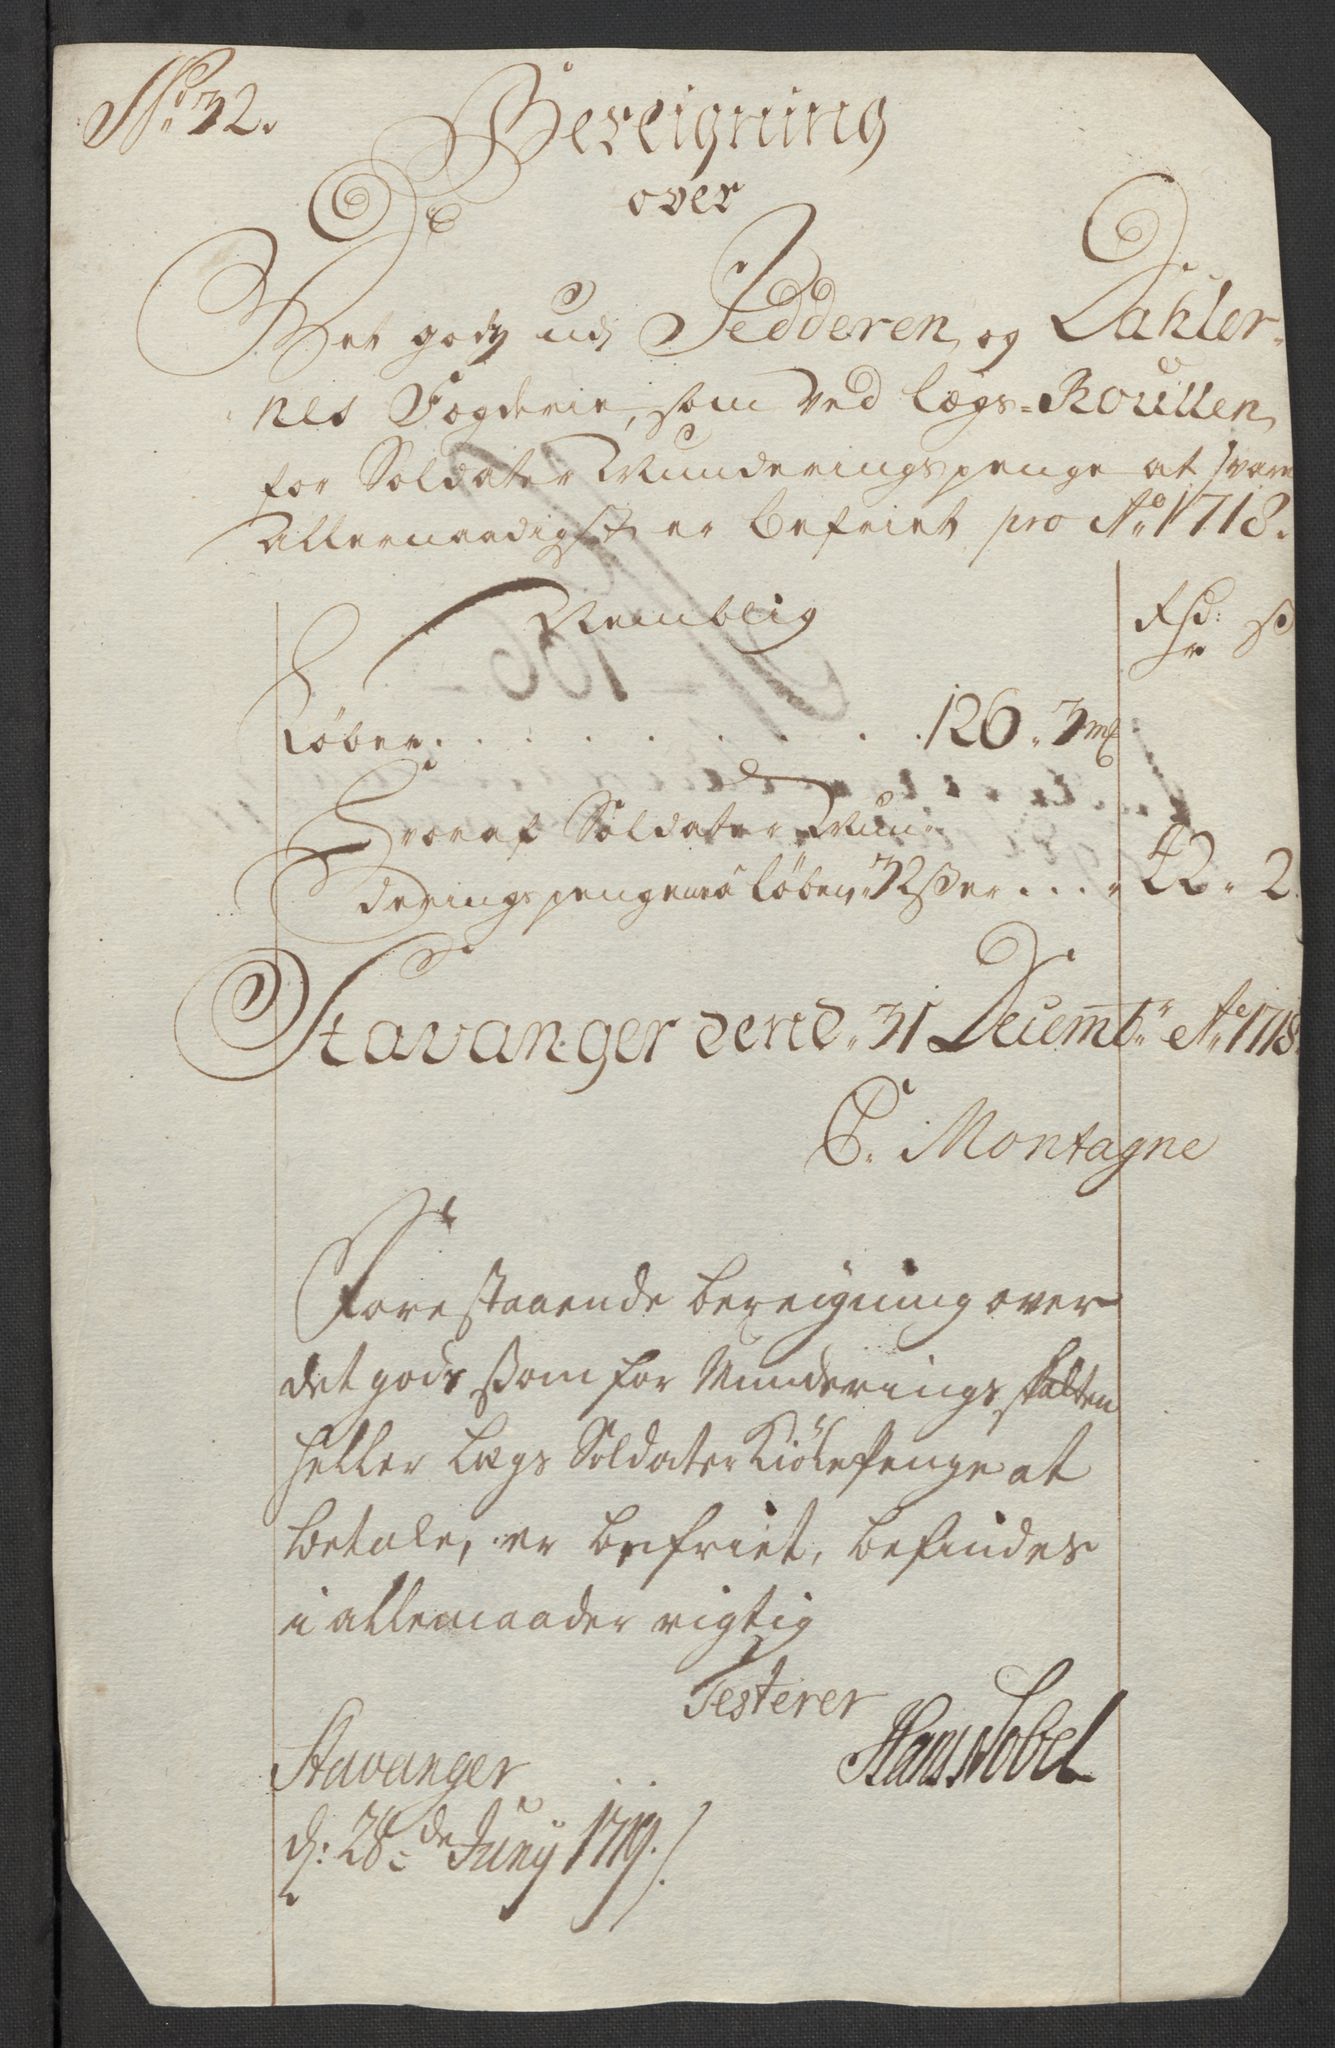 No: 32.
Bereigning
over
Det godz udj Jedderen og Dahler-
nes Fogderie, som ved Lægs-Roullen
for Soldater Munderings penge at svare
Allernaadigst er befriet pro Ao 1718.
Nemblig
Rdr: s
Løber . . . . . . . . 126. 3 mk
Hvoraf Soldater Mun-
derings pengene â Løben 32 s er . . . 42. 2
Stavanger dend. 31 Decembr Ao 1718.
C. Montagne
Forestaaende bereigning over
det gods som for Munderings skatten
heller Lægs Soldater Kiole Penge at
betale, er befriet, befindes
i allemaader rigtig
Testerer
Hans Nobel
Stavanger
d: 28de Juny 1719.